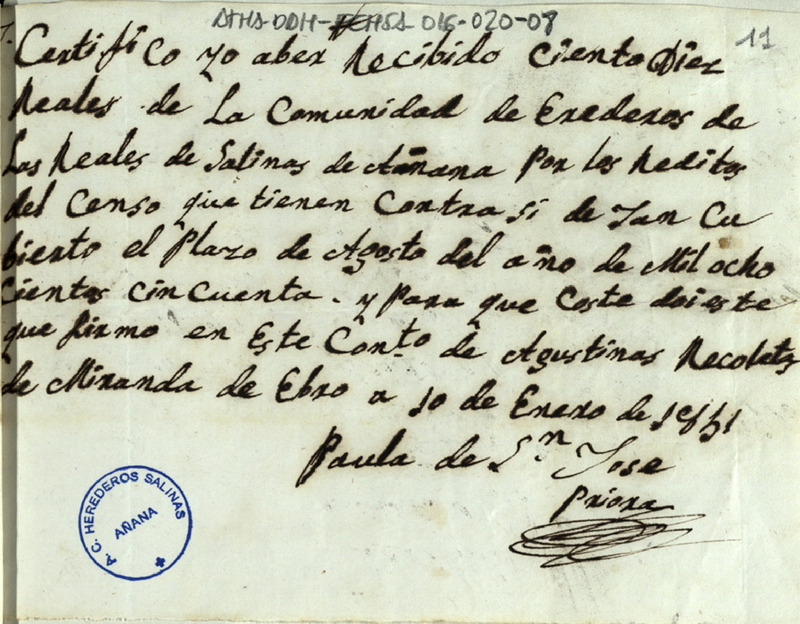 ATHA-DDH-FCHSA 016-020-07
11
Certifico yo aber Recibido Ciento Diez
Reales de La Comunidad de Erederos de
Las Reales de Salinas de Añana Por los Reditos
del Censo que tienen Contra si de Jan Cu
bierto el Plazo de Agosto del año de Mil ocho
Cientos cincuenta. y Para que Coste doi este
que firmo en Este Con.to de Agustinas Recoletas
de Miranda de Ebro a 10 de Enero de 1851
Paula de Sn Jose
Priora
A. C. HEREDEROS SALINAS
AÑANA